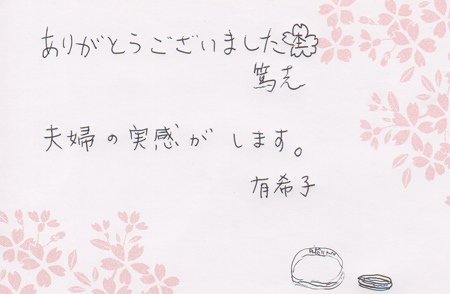 ありがとうございました
篤志
夫婦の実感がします。
有希子